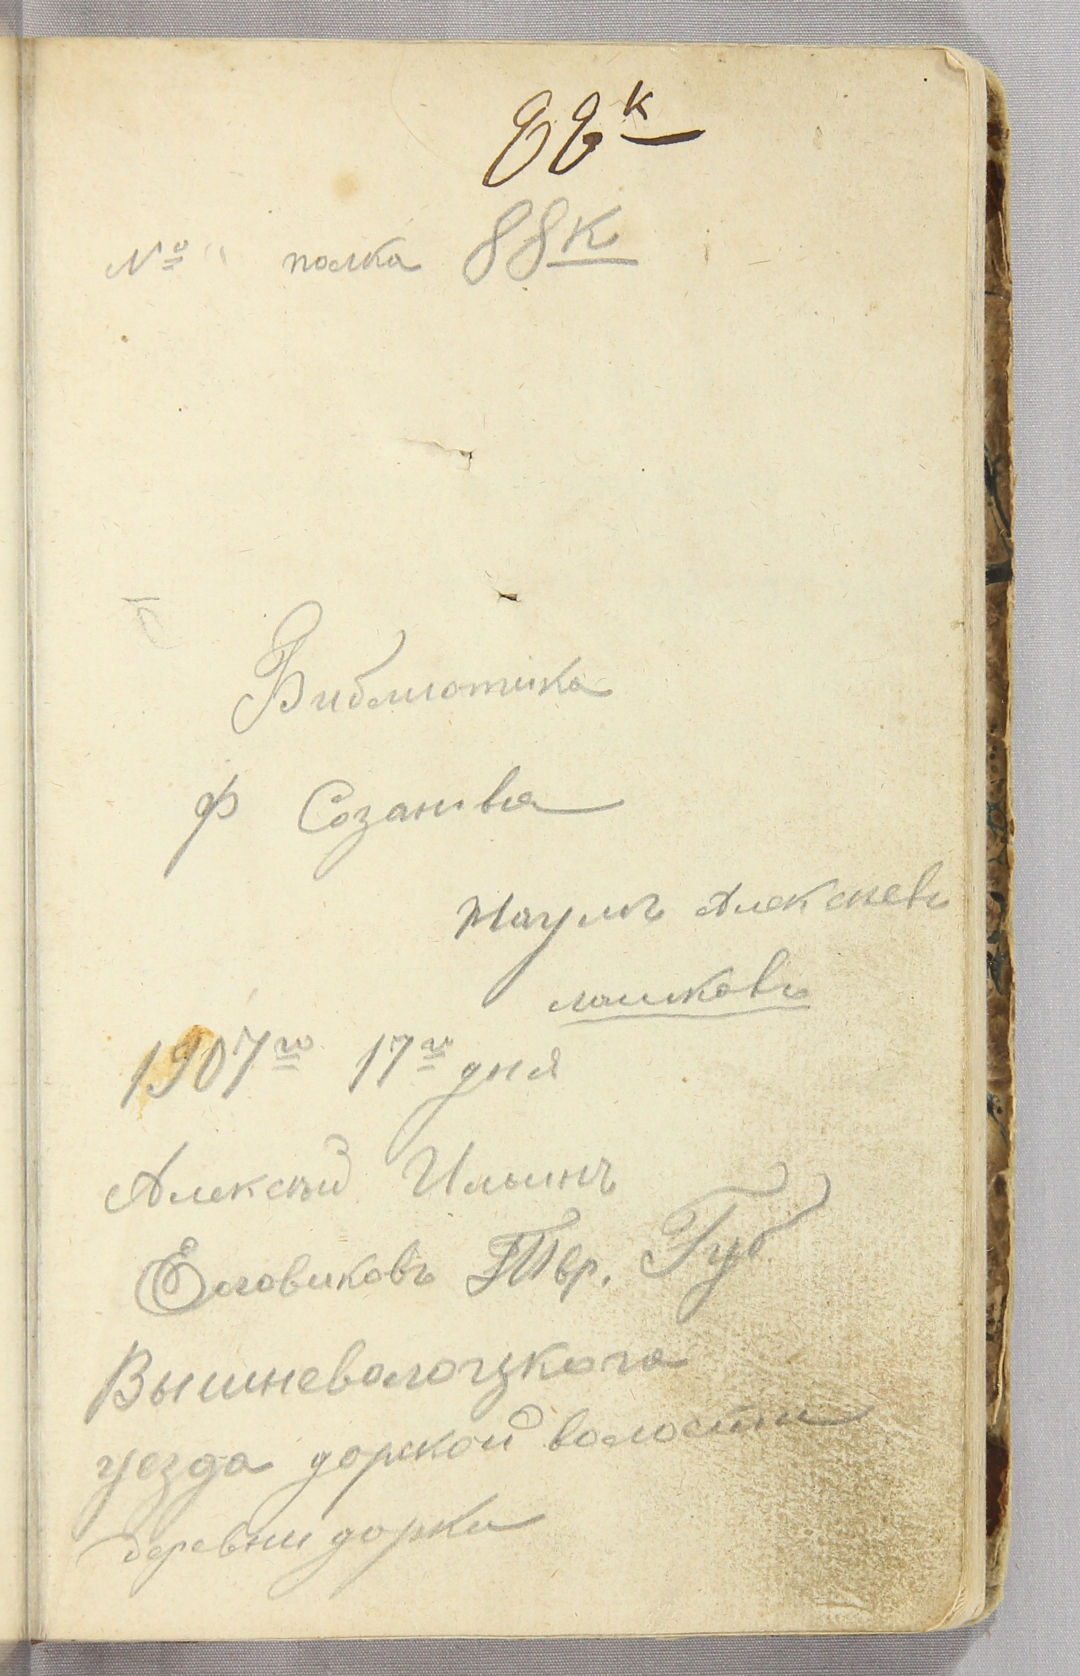 88 к
№ полка 88 к
Библиотика
Ф Созанива
Наумъ Алексеевъ
лошковъ
1907го 17го дня
Алексѣй Ильинъ
Твр. Губ
Вышневолоцкого
уезда дорской волости
деревни дорки